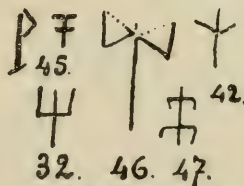 45.
42.
32. 46. 47.